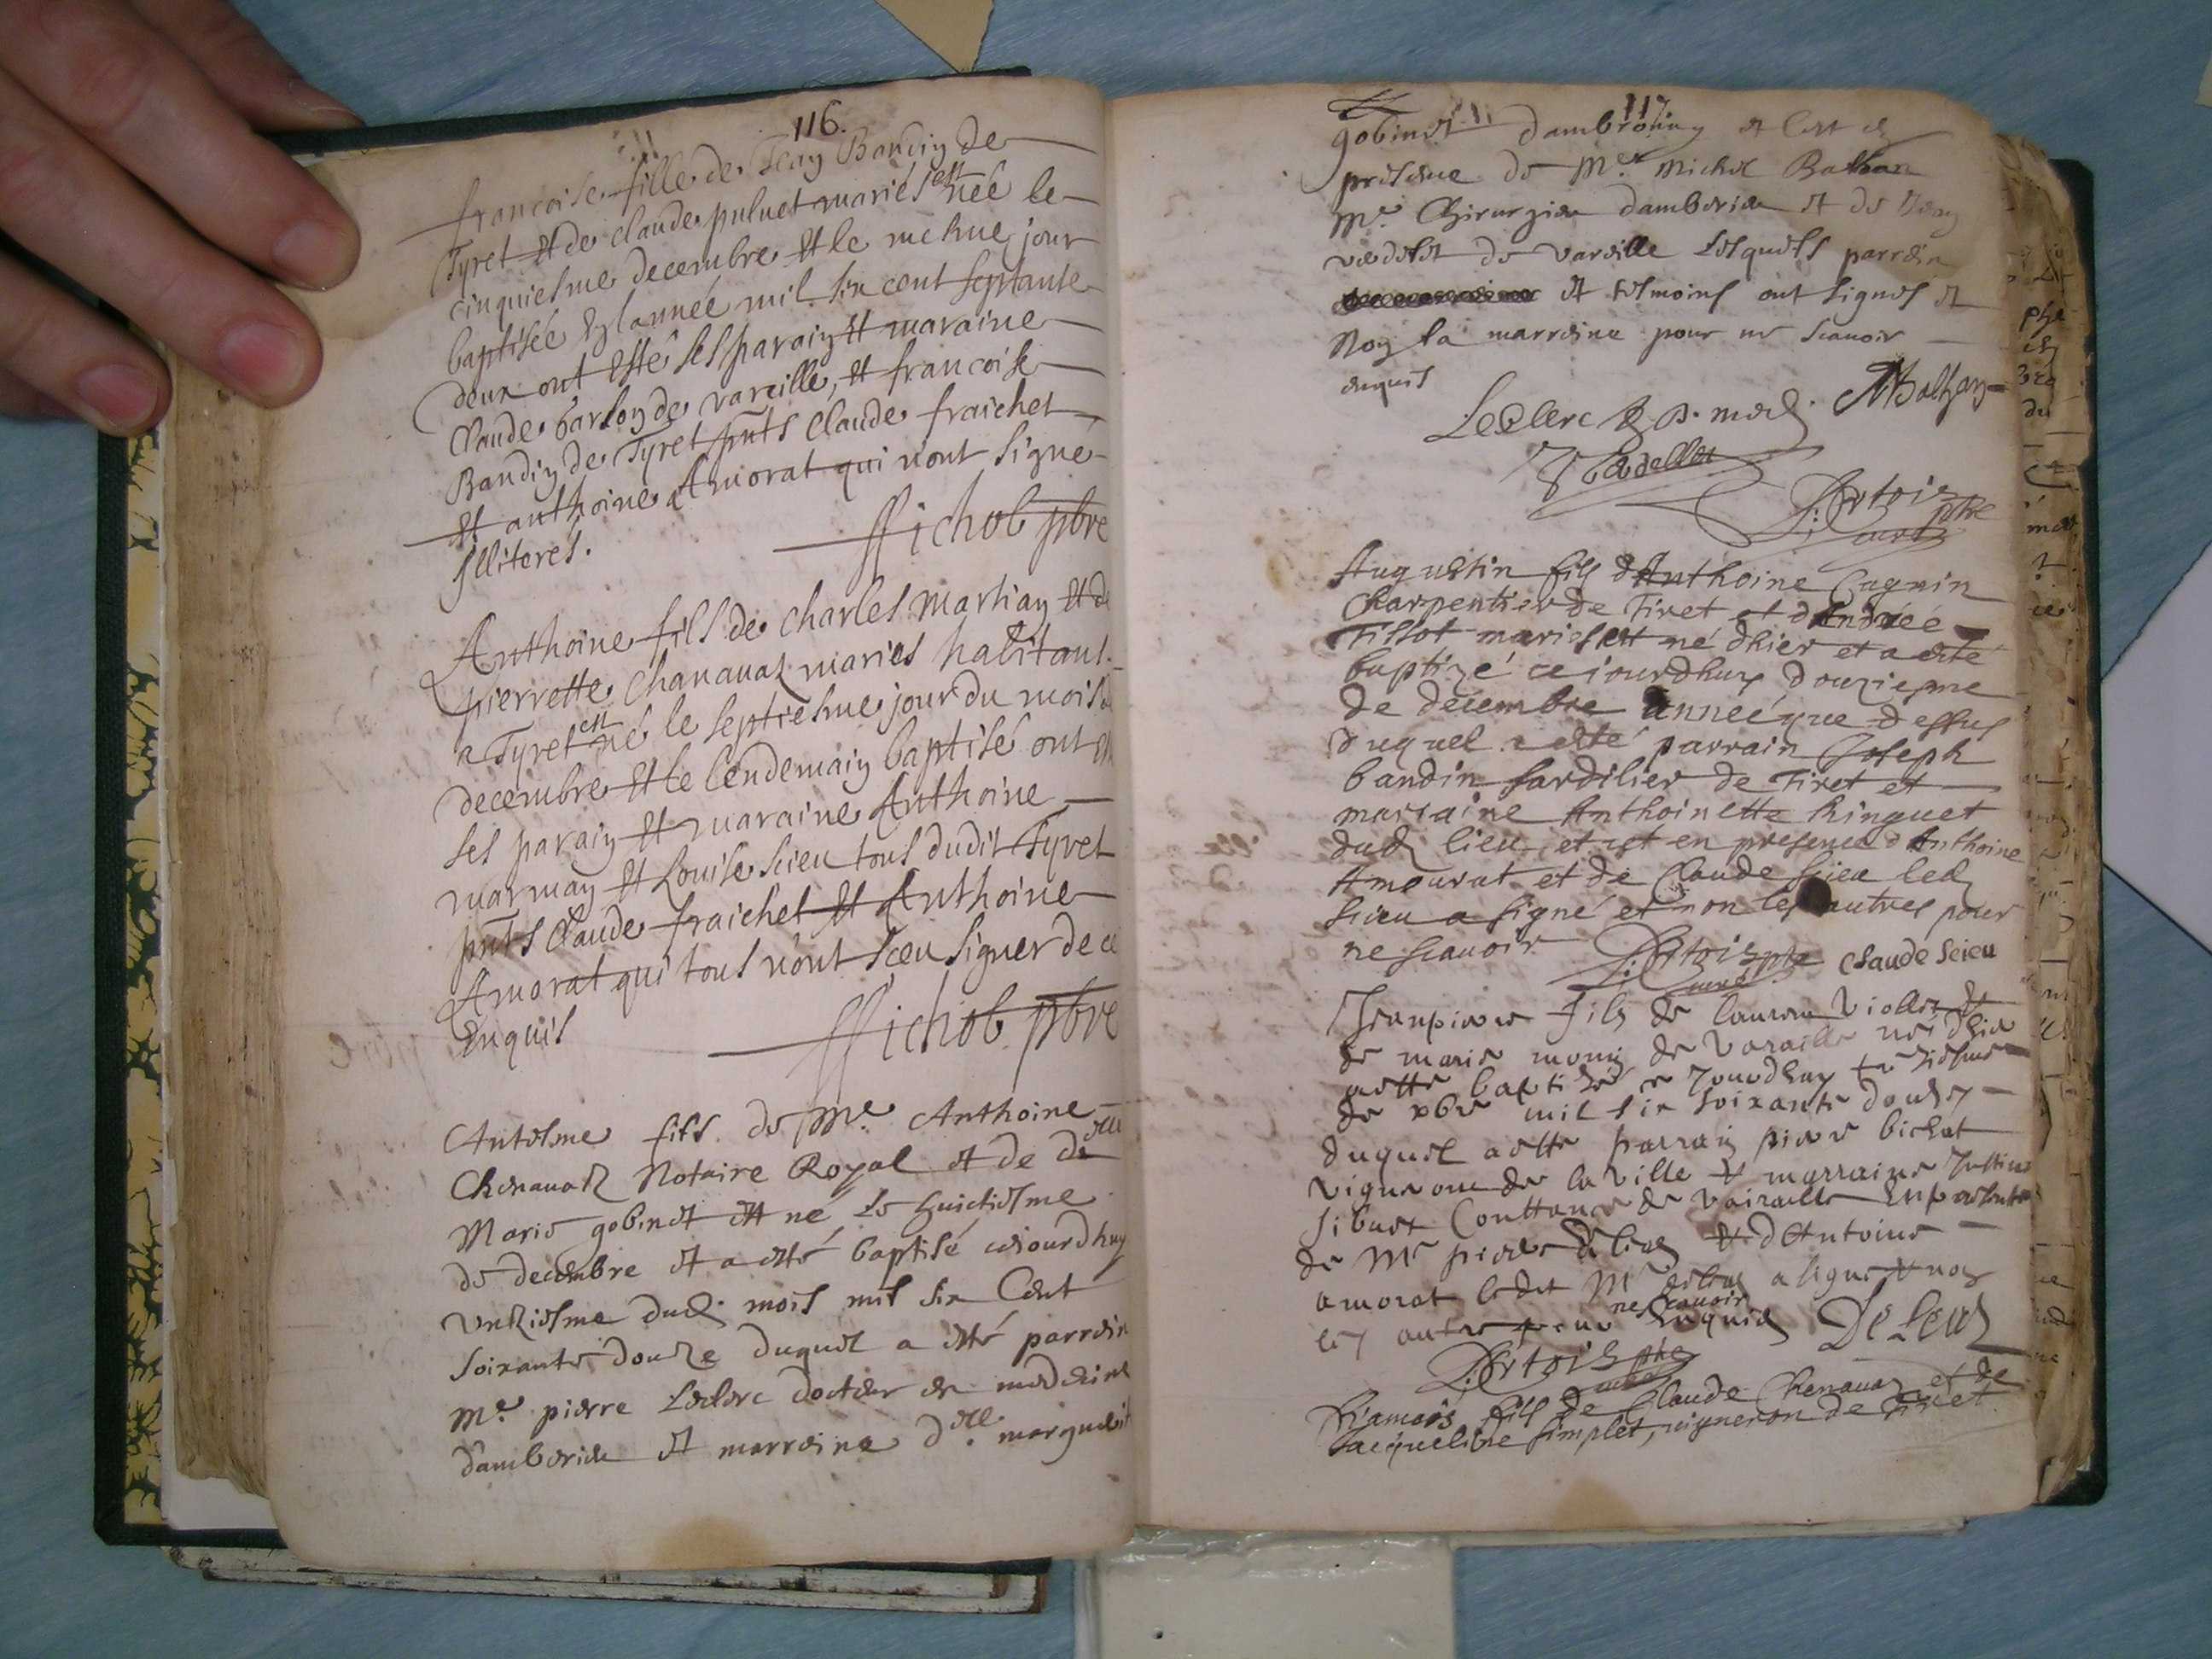 116.
francoise fille de Jean Baudin de
Tyret Et de claude puluet mariés est née le
cinquiesme decembre Et le mesme jour
baptisée En lannée mil six cent septante
deux ont Esté ses parain Et maraine
Claude barlon de vareille, Et francoise
Baudin de Tyret pnts Claude fraichet
Et anthoine Amorat qui nont signé
Illiterés.
Michob pbre
Anthoine fils de charles Martian Et de
pierrette Chanauaz mariés habitant
a Tyret est né le septiesme jour du mois de
decembre Et le lendemain baptisé ont
ses parain Et maraine Anthoine
marman Et Louise Scieu tous dudit Tyret
pnts Claude fraichet Et Anthoine
Amorat qui tous nont sceu signer de ce
Enquis
Michob pbre
Antesme fils de Me. Anthoine
Chenauaz Notaire Royal et de delle
Marie gobinet est né Le huictiesme
de decembre et a esté baptisé cejourdhuy
unziesme dud. mois mil six Cent
soixante douze duquel a esté parrein
Me. pierre Leclerc docteur en medecine
damberieu et marreine delle. marguerit
117
gobinet dambronay et c'est en
presence de Me. Michel Balhan
Me. Chirurgien damberieu et de
vedelet de vareille Lesquels parrein
et tesmoins ont signes et
Non la marreine pour ne scauoir
enquis
Leclerc D. med. MBalhan
Vedellet
Artois pbre
curé
Augustin fils d'Anthoine Cagnin
Charpentier de Tiret et d'Andréé
Tissot mariés est né d'hier et a esté
baptizé ce jourdhuy douziesme
de decembre année que dessus
duquel a esté parrain Joseph
baudin sardilier de Tiret et
marraine Anthoinette Ringuet
dud. lieu et cet en presence d'Anthoine
Amourat et de Claude Scieu led.
Scieu a signé et non les autres pour
ne scauoir
Artois pbre curé Claude Scieu
Jeanpierre fils de laurent Viollet et
de marie monin de Varaille né d'hier
a este baptizé ce jourdhuy treisiesme
de xbre mil six soixante douze
duquel a este parrain pierre bichat
vigneron de la ville et marraine Justine
sibuet Conttance de Vairaille En presence
de Mr pierre deleas et d'Antoine
amorat ledit Mr deleas a signe et non
les autre pour ne scauoir Enquis
Artois pbre
curé
François fils de Claude Chenauaz et de
Jacqueline simplet, vigneron de Tiret